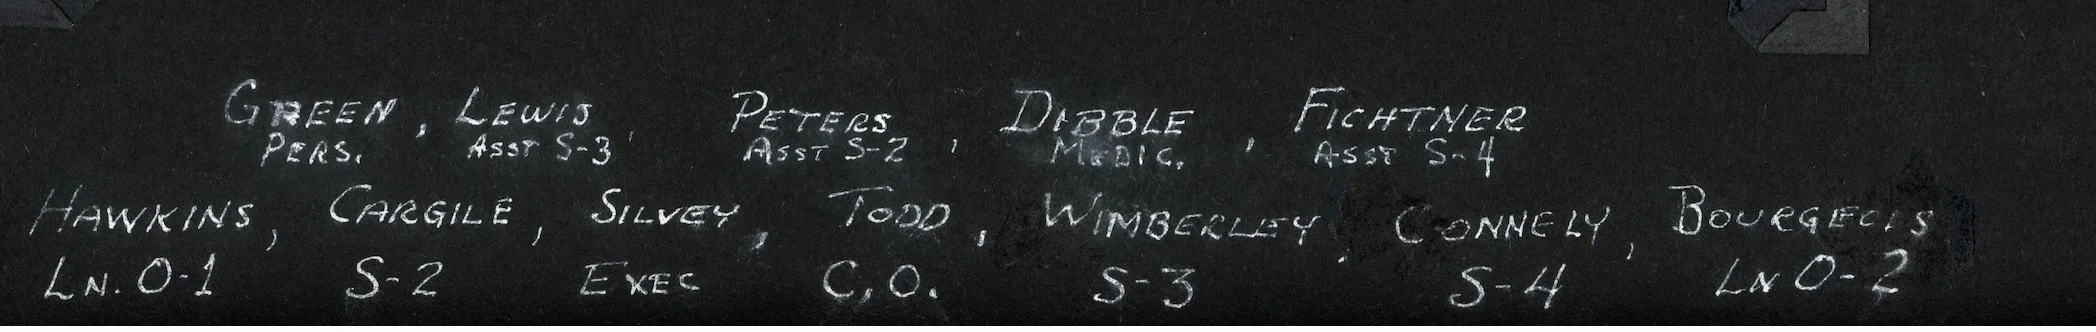 GREEN, LEWIS, PETERS, DIBBLE, FICHTNER
PERS. ASST S-3 ASST S-2 MEDIC. ASST S-4
HAWKINS, CARGILE, SILVEY, TODD, WIMBERLEY, CONNELY, BOURGEOIS
LN. O-1 S-2 EXEC C.O. S-3 S-4 LN O-2